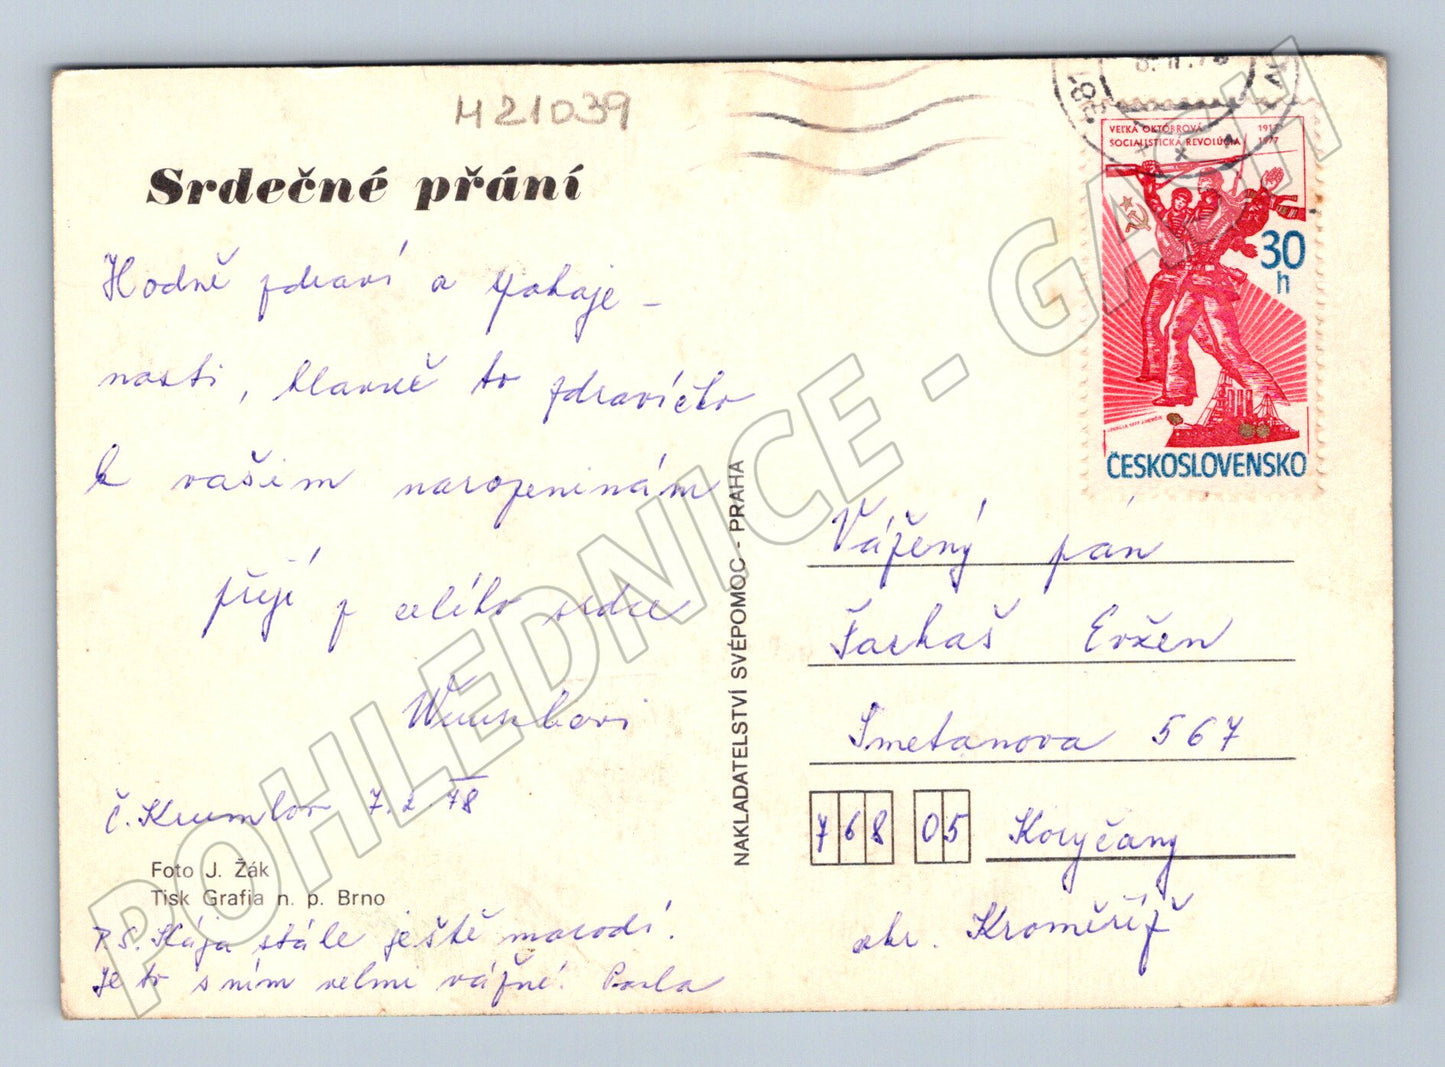 H21039
Srdečné přání
Hodně zdraví a spokoje-
nosti, hlavně to zdravíčko
k vašim narozeninám
přejí z celého srdce
Č. Krumlov 7.2.78
Foto J. Žák
Tisk Grafia n. p. Brno
P.S. Kája stále ještě marodí.
Je to s ním velmi vážné. Pavla
NAKLADATELSTVÍ SVÉPOMOC - PRAHA
VEĽKÁ OKTÓBROVÁ 1917
SOCIALISTICKÁ REVOLÚCIA 1977
30
h
ČESKOSLOVENSKO
Vážený pán
Farkaš Evžen
Smetanova 567
768 05 Koryčany
okr. Kroměříž
POHLEDNICE - GASH